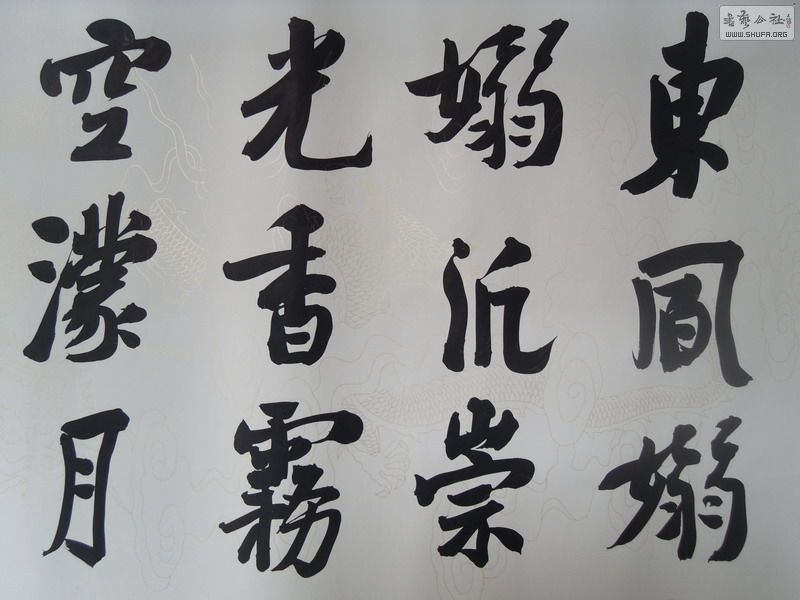 東風嫋
嫋汎崇
光香霧
空濛月
書藝公社
WWW.SHUFA.ORG